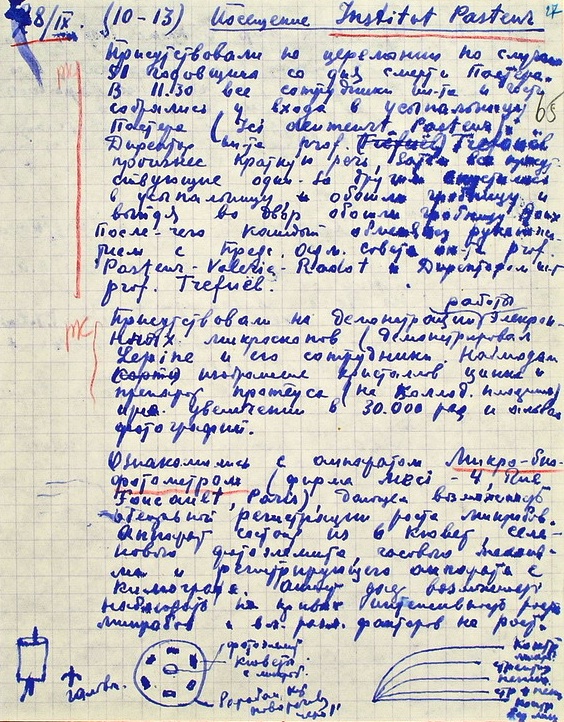 28/IX. (10-13) Посещение Institut Pasteur 27
Присутствовали на церемонии по случаю
годовщины со дня смерти Пастера.
В 11.30 все сотрудники ин-та и
собрались у входа в усыпальницу 65
Пастера (Ici Pasteur)
Директор ин-та prof. Trefuel
произнес краткую речь, затем все присут-
ствующие один за другим спустились
в усыпальницу и обошли гробницу и
выйдя во двор обошли гробницу
После чего каждый обменялся рукопожа-
тием с Пред. совета ин-та prof.
Pasteur-Valerie-Radot и Директором ин-т
prof. Trefuel.
работы
Присутствовали на демонстрации электрон-
ных микроскопов (демонстрировал
Lepine и его сотрудники. Наблюдали
изображение кристаллов цинка и
препарат протеуса (на коллод.
при увеличении в 30.000 раз и
фотографий.
Ознакомились с аппаратом Микро-био-
фотометром (фирма Meci - 4, Rue
Paris), дающее возможность
регистрации роста микробов.
Аппарат состоит из 6 кювет, селе-
нового фотоэлемента, часового механиз-
ма и регистрирующего аппарата с
кимографа. дает возможность
наблюдать на кривых интенсивность роста
микробов и влиян. разн. факторов на рост.
фотоэлемент
кюветы
с микроб.
гальв.
Контр.
стрепт
пениц.
стр + пен